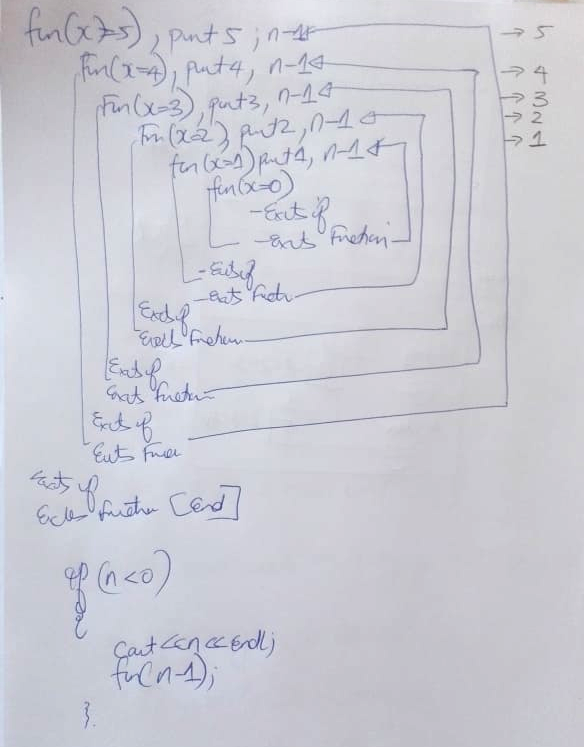 fun(x=5), punt 5 ; n-1 → 5
Fun(x=4), punt 4, n-1 → 4
Fun(x=3), punt 3, n-1 → 3
Fun(x=2), punt 2, n-1 → 2
fun(x=1) punt 1, n-1 → 1
fun(x=0)
- Exits if
- exits Function
- Exits if
- exits Function
Exits if
Exits Function
Exits if
Exits Function
Exits if
Exits Function
Exits if
Exits Function [End]
if (n<0)
{
cout<<n<<endl;
fun(n-1);
}